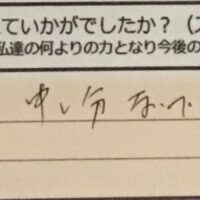 ていかがでしたか？（ス
私達の何よりの力となり今後の
申し分ないで